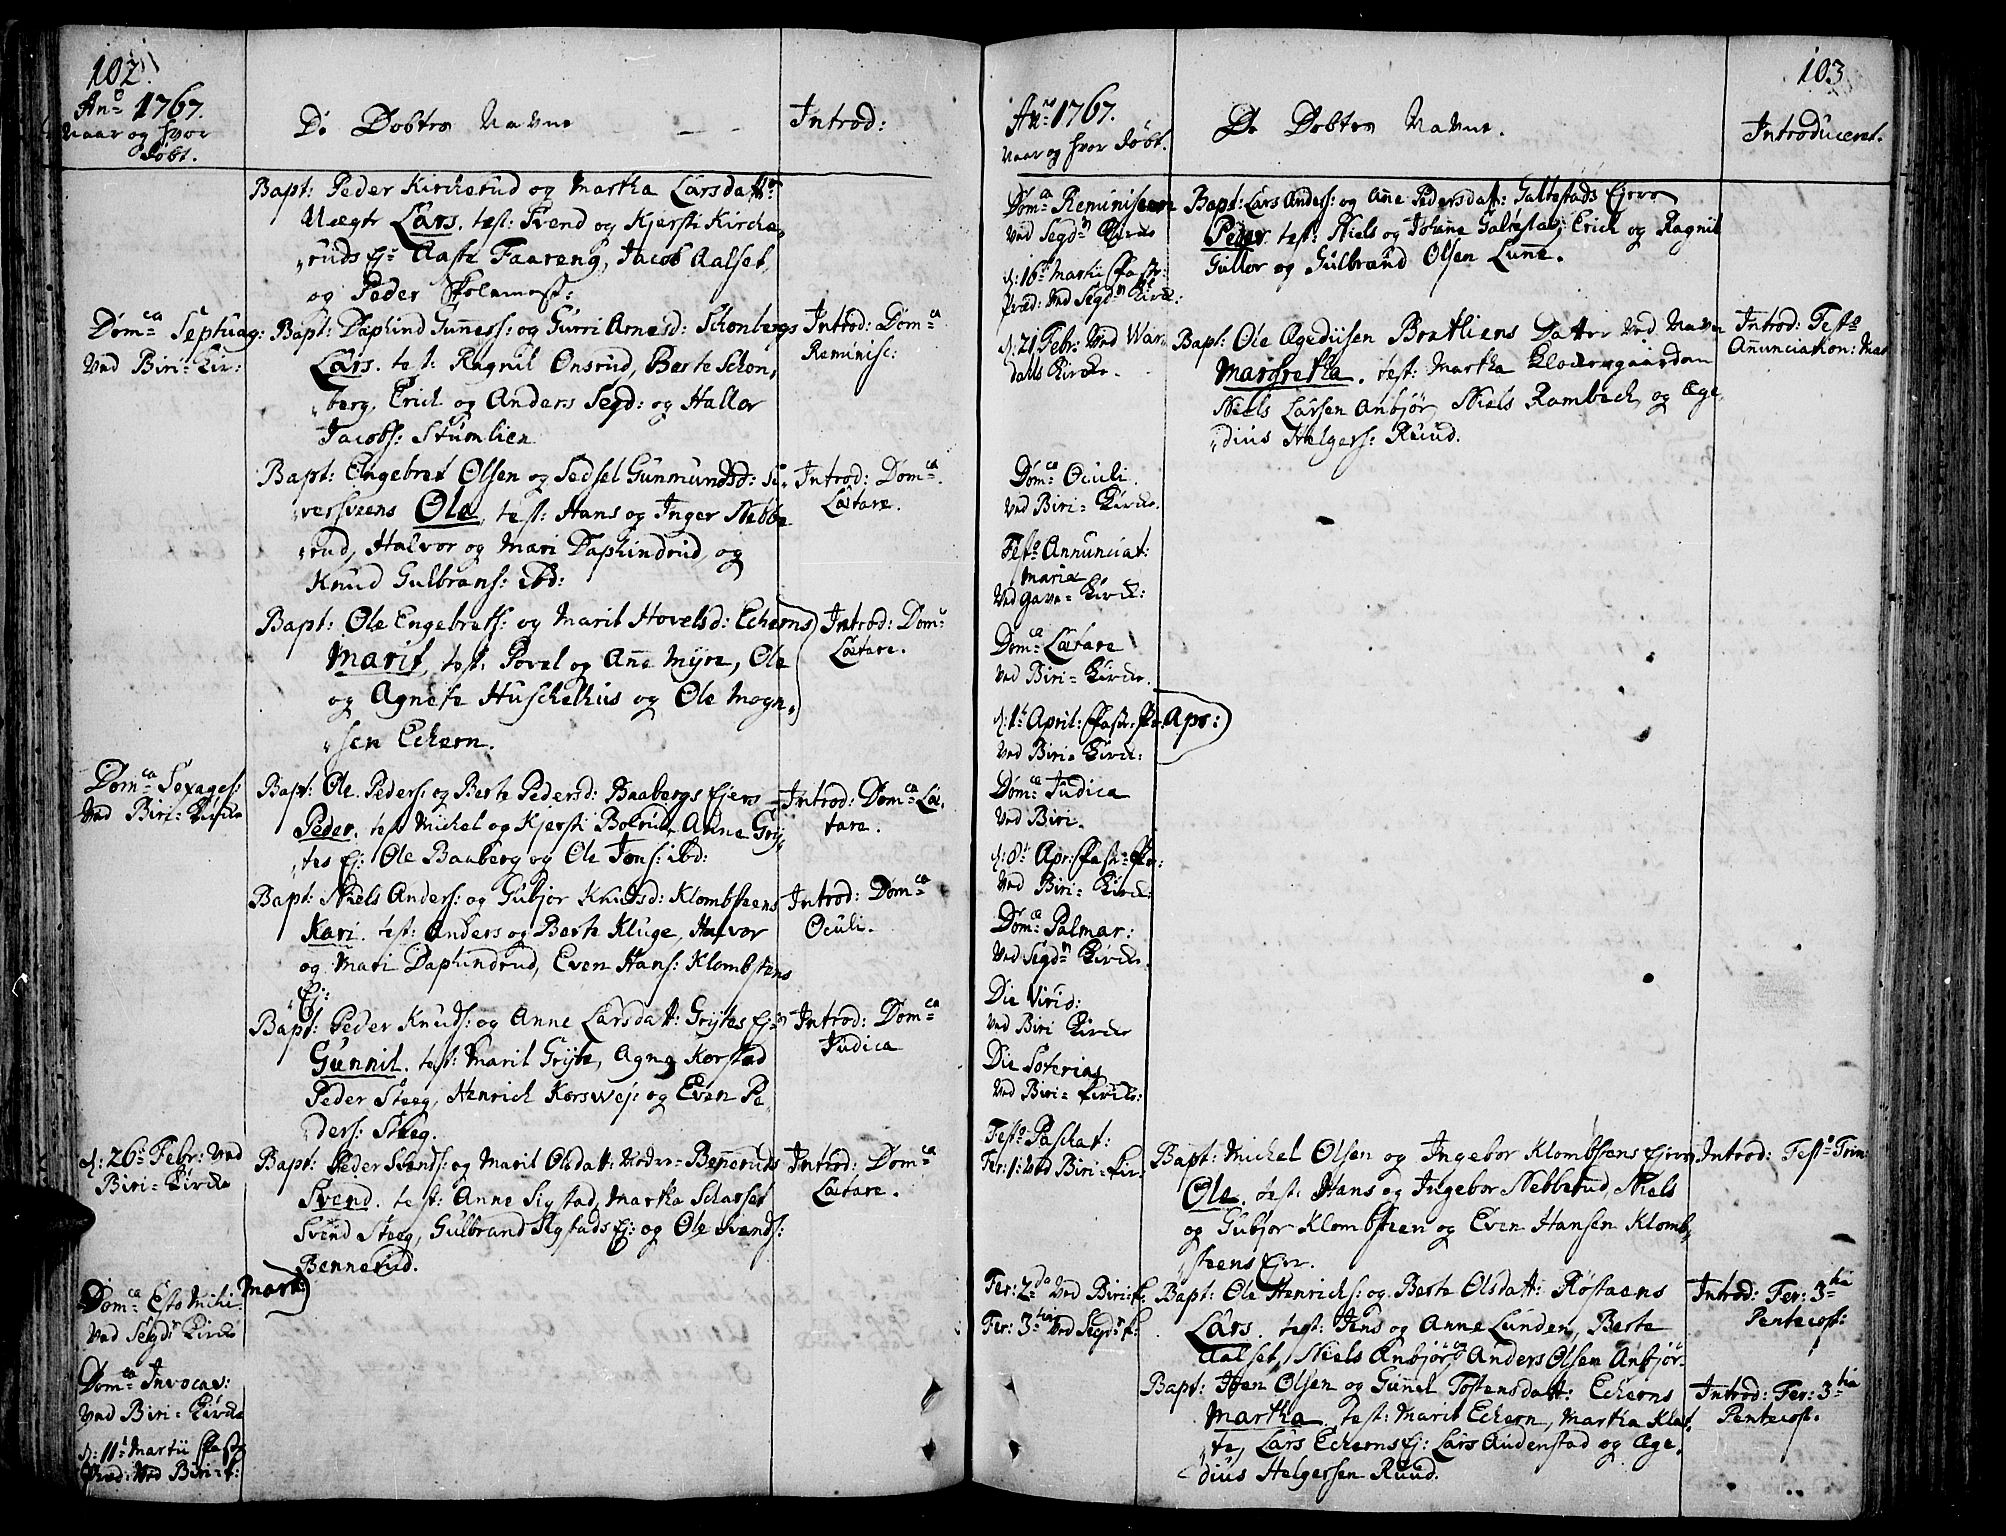 102.
Anº 1767.
Naar og hvor
døbt.
De Døbtes Navne
Introd:
Bapt: Peder Kircherud og Martha Larsdattr
Uægte Lars. test: Svend og Kjersti Kirche,
ruds Ej: Aaste Faareng, Jacob Aalset,
og Peder Skolemest:
Domca Septuag:
Ved Biri-Kir:
Bapt: Daphind Gunness: og Gurri Arnesd: Schonbergs
Lars. test: Ragnil Onsrud, Berte Schon,
berg, Erich og Anders Segd: og Hallor
Jacobs: Stumlien
Introd: Domca
Reminisc:
Bapt: Engebret Olsen og Sedsel Gunmundsd: Si,
versveens Ole, test: Hans og Inger Nebbe
rud, Halvor og Mari Daphindrud, og
Knud Gulbrans: ibd:
Introd: Domca
Lætare.
Bapt: Ole Engebrets: og Marit Hovelsd: Echerns
Marit, test: Povel og Anne Myre, Ole
og Agnete Huschelhus og Ole Mogn,
sen Echern.
Introd: Dom:
Lætare.
Domca Sexages:
Ved Biri-Kirche
Bapt: Ole Peders: og Berte Pedersd: Baabergs Ejers
Peder. test Michel og Kjersti Bolrud, Anne Gry,
tes Ej: Ole Baaberg og Ole Jons: ibd:
Introd: Domca Læ,
tare.
Bapt: Niels Anders: og Gubjor Knudsd: Klombsteens
Kari. test: Anders og Berte Kluge, Halvor
og Mari Daphindrud, Even Hans: Klombstens
Ej:
Introd: Domca
Oculi.
Bapt: Peder Knuds: og Anne Larsdatt: Grytes Ej:
Gunnil. test: Marit Gryte, Agne Korstad
Peder Steeg, Henrich Korsvej: og Even Pe,
ders: Steeg.
Introd: Domca
Judica
d: 26 Febr: Ved
Biri-Kirche
Bapt: Peder Svends: og Marit Olsdatt: Neder-Benneruds
Svend. test: Anne Sigstad, Martha Scharset
Svend Steeg, Gulbrand Sigstads Ej: og Ole Svends:
Bennerud.
Introd: Domca
Lætare.
Mart:
Domca Esto Mihi.
Ved Segdr Kirche
Domca Invocav:
Ved Biri-Kirche
d: 11t Martii Faste
Præd: Ved Biri-K:
103
Anno 1767.
Naar og hvor døbt.
De Døbtes Navne.
Introduceret.
Domca Reminiscere
Ved Segdn Kirche
d: 16t Martii Faste:
Præd: Ved Segdn Kirch:
Bapt: Lars Anders: og Anne Pedersdatt: Galtestads Ejere
Peder. test: Niels og Johanne Galtestad, Erich og Ragnil
Gullor og Gulbrand Olsen Lunne.
d: 21 Febr: Ved War,
dals Kirche.
Bapt: Ole Ægediisen Bratliens Datter Ved Navn
Margretha. test: Martha Klochergaarden
Niels Larsen Anbjør, Niels Rambech, og Æge,
dius Helgers: Ruud.
Introd: Festo
Annunciation: Mar
Domca Oculi.
Ved Biri-Kirche.
Festo Annunciat:
Mariæ
Ved Gave-Kirch:
Domca Lætare
Ved Biri-Kirche.
d: 1t April: Faste-Pr. Apr:
Ved Biri-Kirch:
Domca Judica
Ved Biri.
d: 8t Apr: Faste-Pr:
Ved Biri-Kirch:
Domca Palmar:
Ved Segdn Kirche.
Die Virid:
Ved Biri Kirche
Die Soterias
Ved Biri-Kirch:
Festo Paschat:
Fer: 1: Ved Biri-Kir.
Bapt: Michel Olsen og Ingebor Klombstens Ejere
Ole. test: Hans og Ingebor Nebberud, Niels
og Gubjor Klombsteen og Even Hansen Klomb,
steens Ejer.
Introd: Festo Trin:
Fer: 2da Ved Biri-K:
Fer: 3tia Ved Segdr K:
Bapt: Ole Henrichs: og Berte Olsdatt: Røstaens
Lars. test: Jens og Anne Lunden, Berte
Aalset, Niels Anbjør, og Anders Olsen Anbjør.
Introd: Fer: 3tia
Pentecost:
Bapt: Iten Olsen og Gunnil Tostensdatt: Echerns
Martha. test: Marit Echern, Martha Klæt,
te, Lars Echerns Ej: Lars Audenstad og Æge,
dius Helgersen Ruud.
Introd: Fer: 3tia
Pentecost.